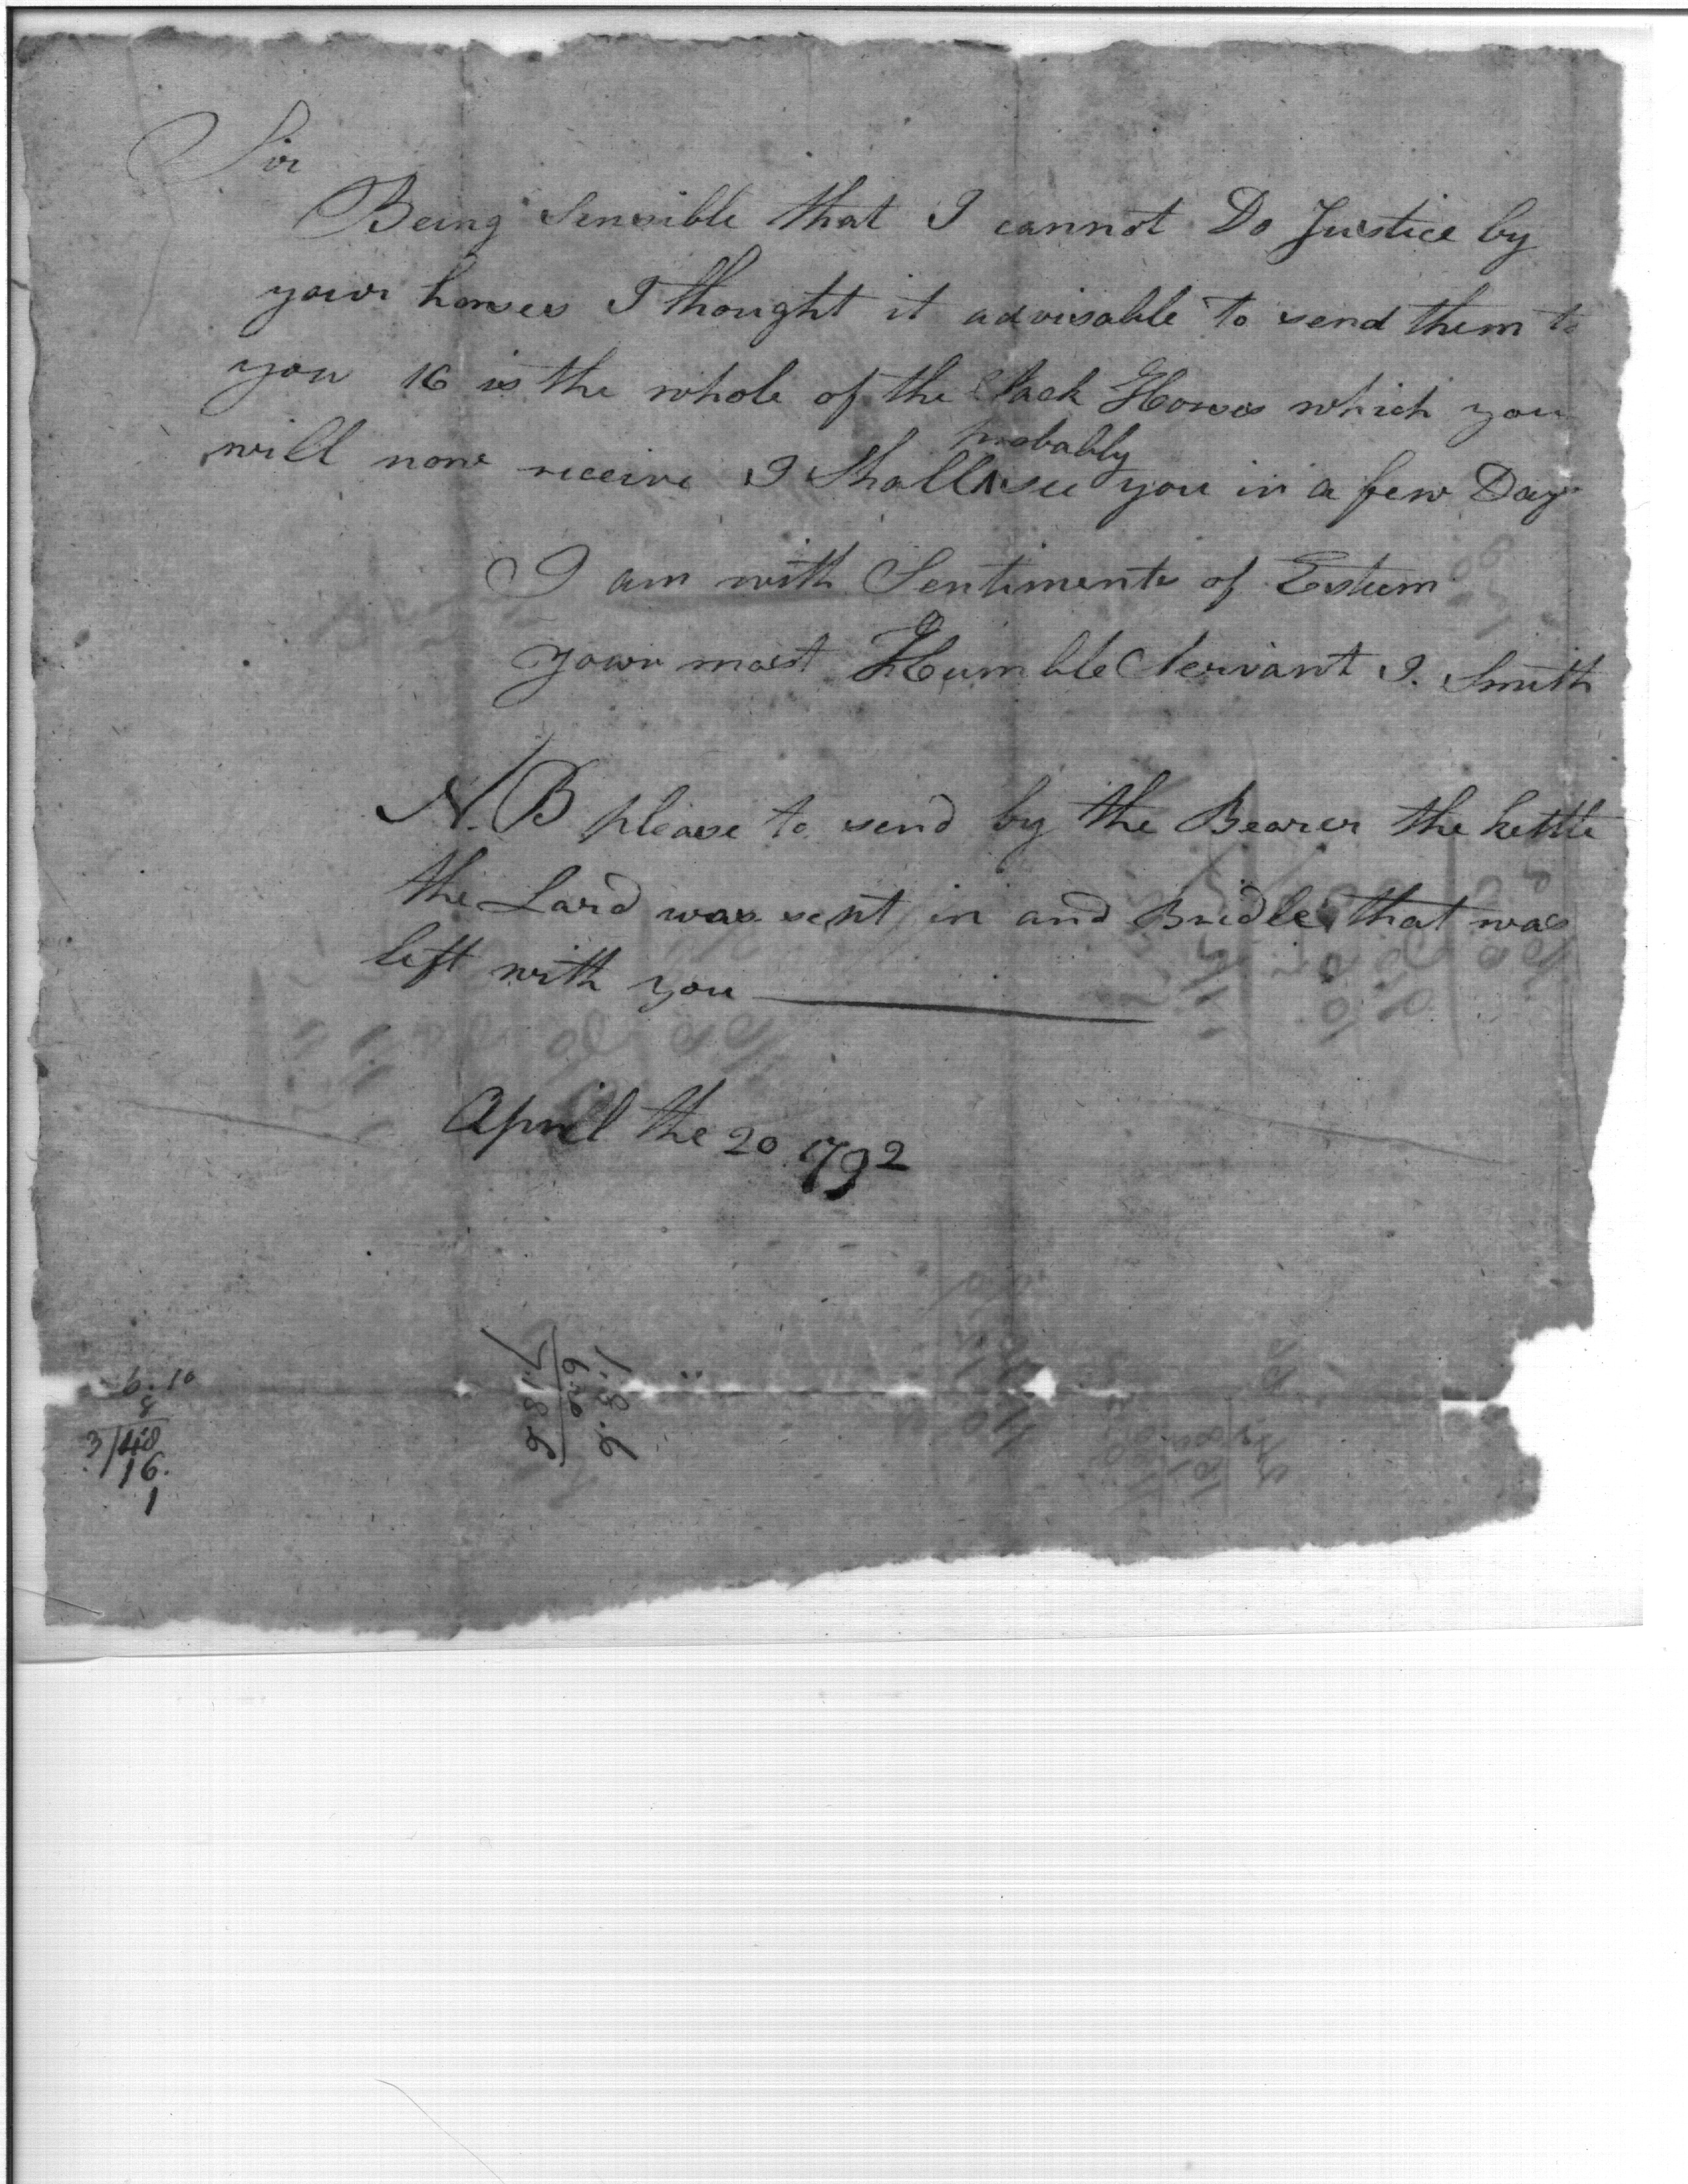 Sir
Being Sensible that I cannot Do Justice by
your horses I thought it advisable to send them to
you 16 is the whole of the Pack Horses which you
probably
will now receive I Shall ‸ see you in a few Days
I am with Sentiments of Esteem
your most Humble Servant I. Smith
N.B please to send by the Bearer the kettle
the Lard was sent in and Bridle that was
left with you
April the 20 1792
6.10
8
3/48
16.
1